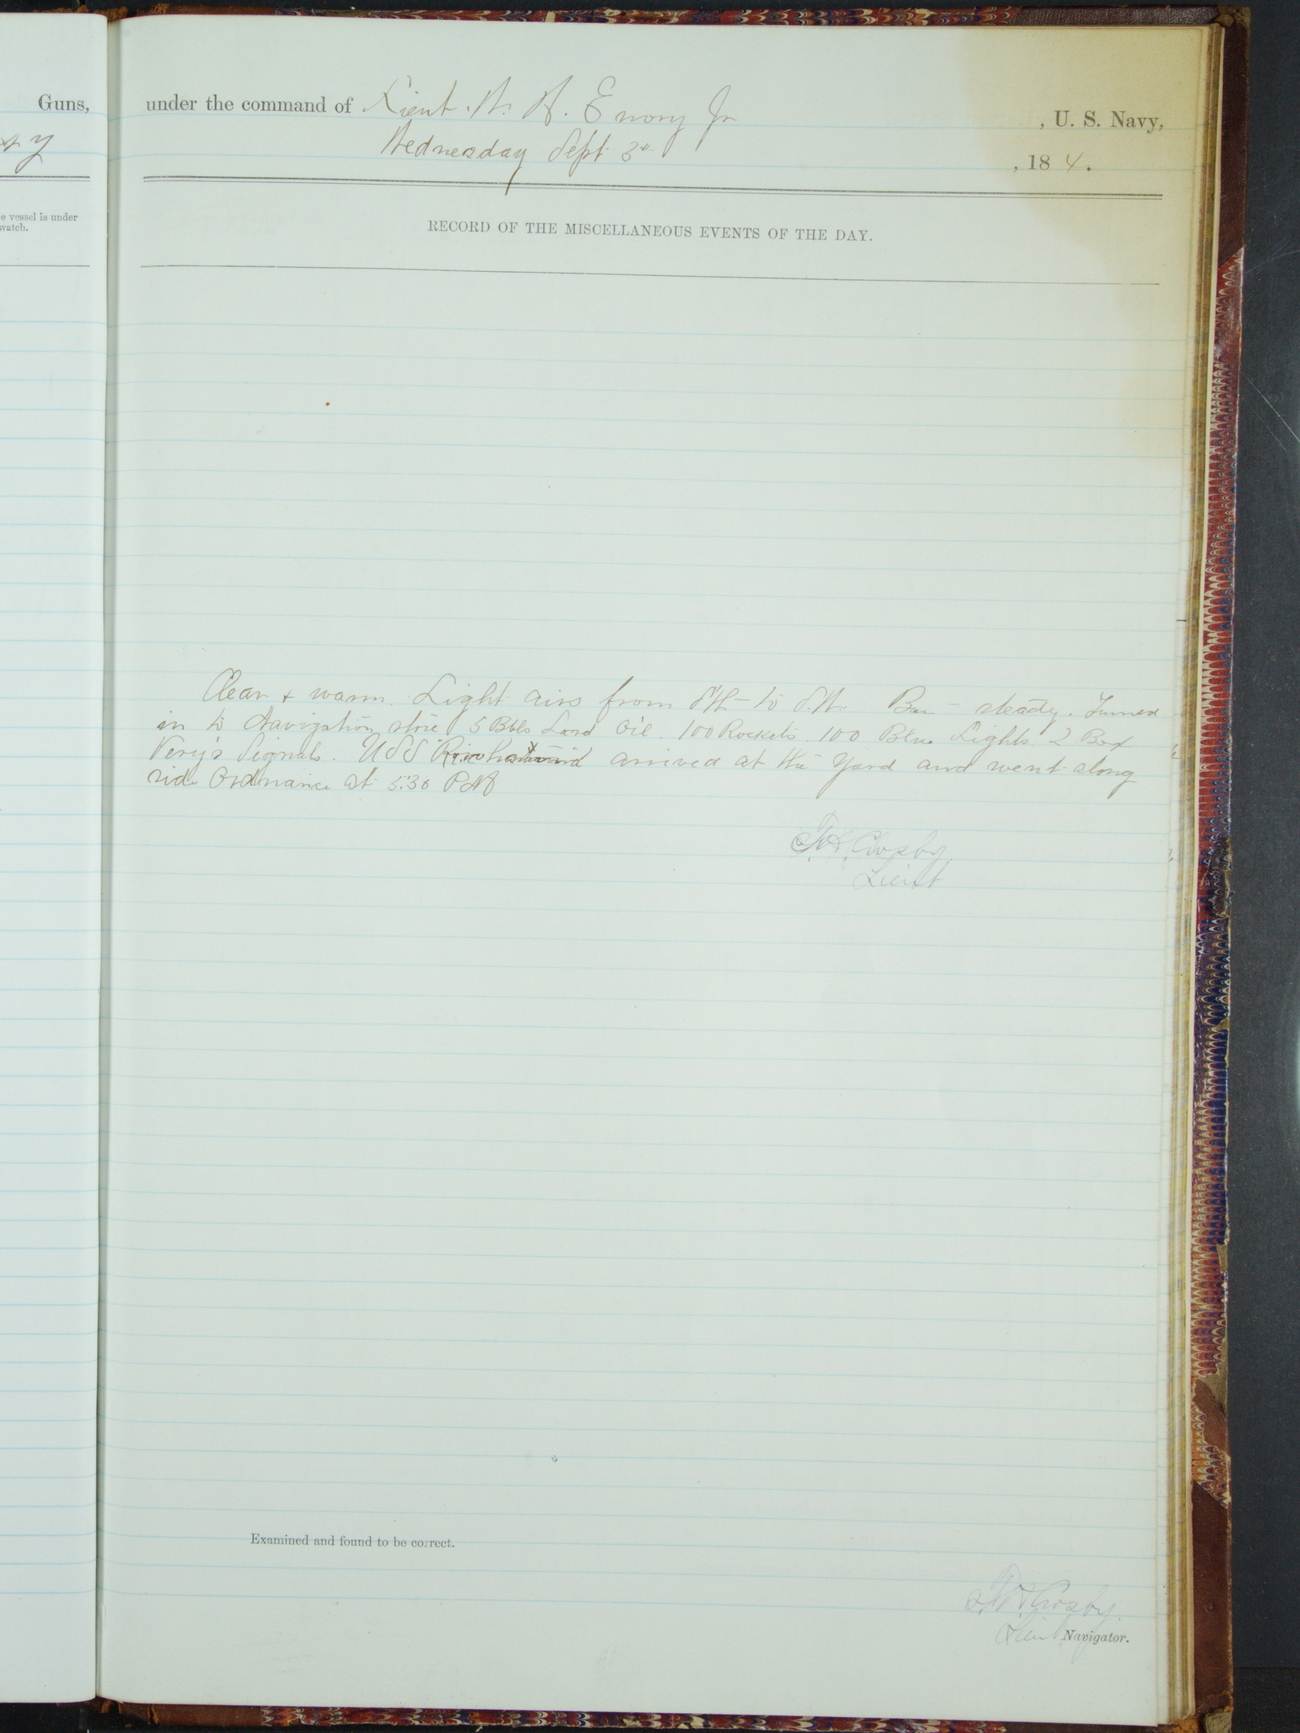 Guns,
under the command of Lieut. W. H. Emory Jr , U. S. Navy,
Wednesday Sept 3rd , 18 4.
e vessel is under
watch.
RECORD OF THE MISCELLANEOUS EVENTS OF THE DAY.
Clear + warm. Light airs from to Bar steady. Turned
in to Navigation store 5 Bbls Lard Oil. 100 Rockets. 100 Blue Lights 2 Box
Very's Signals. USS arrived at the Yard and went along
side Ordnance at 5:30 PM
Crosby
Lieut
Examined and found to be correct.
Crosby.
Lieut Navigator.